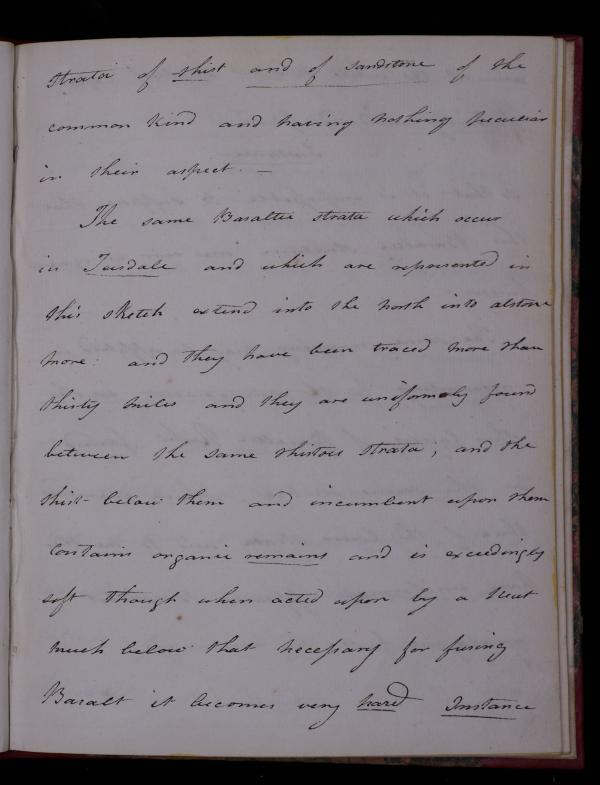 strata of shist and of sandstone of the
common kind and having nothing peculiar
in their aspect. —
The same Basaltic strata which occur
in Teesdale and which are represented in
this sketch extend into the north into alstone
more: and they have been traced more than
thirty miles and they are uniformly found
between the same shistous strata; and the
shist below them and incumbent upon them
contains organic remains and is exceedingly
soft though when acted upon by a heat
much below that necessary for fusing
Basalt it becomes very hard Instance